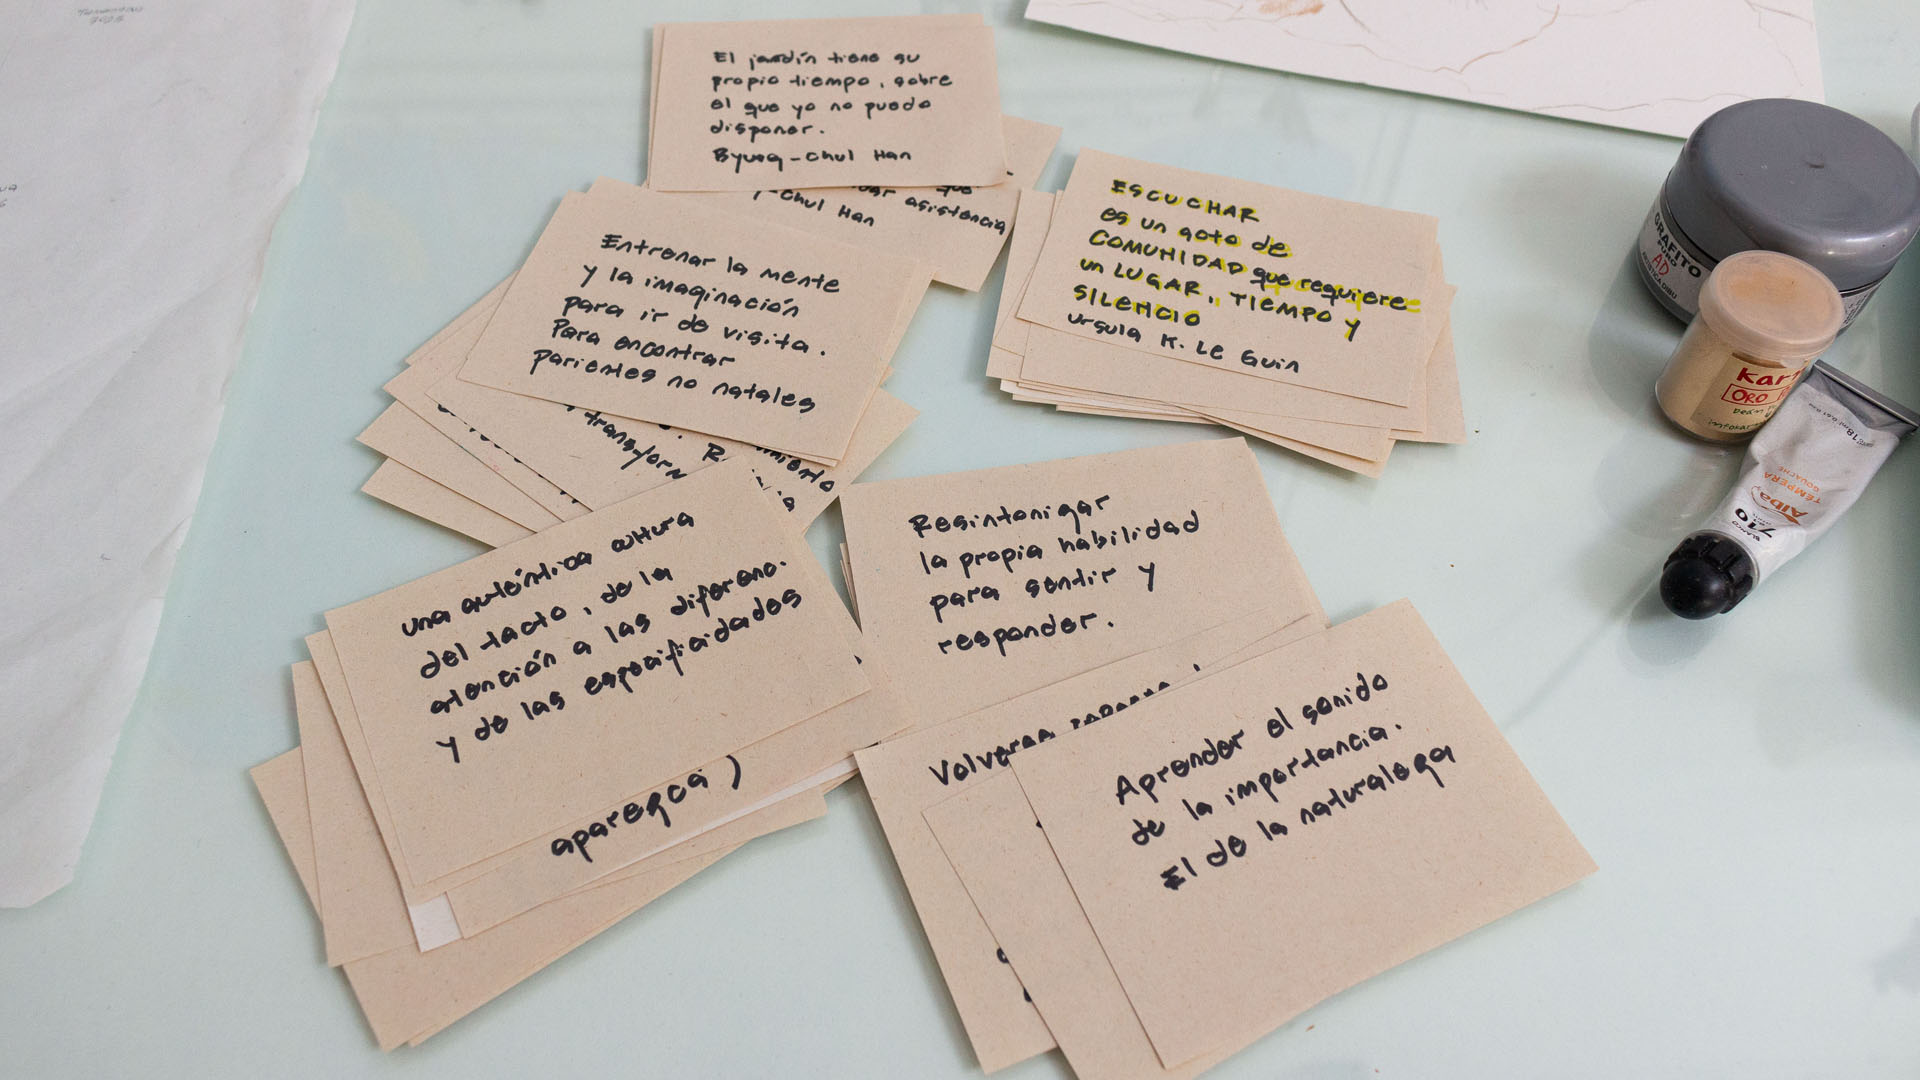 El jardín tiene su
propio tiempo, sobre
el que yo no puedo
disponer.
Byung-Chul Han
asistencia
-Chul Han
ESCUCHAR
es un acto de
COMUNIDAD que requiere
un LUGAR, TIEMPO y
SILENCIO
Ursula K. Le Guin
Entrenar la mente
y la imaginación
para ir de visita.
Para encontrar
parientes no natales
transform
una auténtica cultura
del tacto, de la
atención a las diferenc.
y de las especificidades
aparezca)
Resintonizar
la propia habilidad
para sentir y
responder.
Aprender el sonido
de la importancia.
El de la naturaleza
GRAFITO
PURO
AD
ORO
Alba
TÉMPERA
GOUACHE
710
BLANCO
18ml